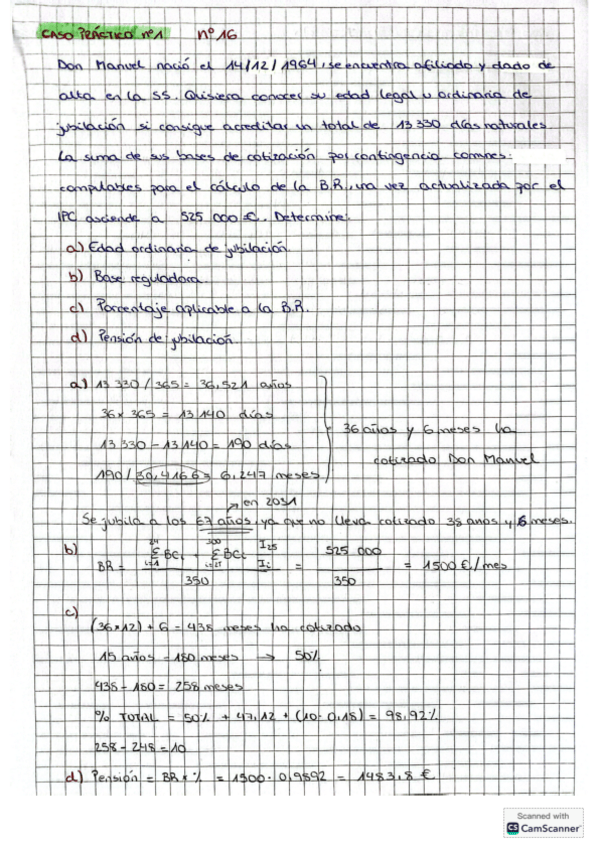 CASO PRÁCTICO nº1 nº16
Don Manuel nació el 14/12/1964, se encuentra afiliado y dado de
alta en la SS. Quisiera conocer su edad legal u ordinaria de
jubilación si consigue acreditar un total de 13 330 días naturales.
La suma de sus bases de cotización por contingencia comnes.
computables para el cálculo de la B.R., una vez actualizada por el
IPC asciende a 525 000 €. Determine:
a) Edad ordinaria de jubilación.
b) Base reguladora.
c) Porcentaje aplicable a la B.R.
d) Pensión de jubilación.
a) 13 330 / 365 = 36,521 años
36 x 365 = 13 140 días
13 330 - 13 140 = 190 días
190 / 30,4166 = 6,247 meses
36 años y 6 meses ha
cotizado Don Manuel
→ en 2031
Se jubila a los 67 años, ya que no lleva cotizado 38 anos y 6 meses.
b) BR = 24 Σ i=1 BCi + 300 Σ i=25 BCi I25 / Ii / 350 = 525 000 / 350 = 1500 €/mes
c)
(36x12) + 6 = 438 meses ha cotizado
15 años - 180 meses → 50%
438 - 180 = 258 meses
% TOTAL = 50% + 47,12 + (10 · 0,18) = 98,92%
258 - 248 = 10
d) Pensión = BR x % = 1500 · 0,9892 = 1483,8 €
Scanned with
CS CamScanner